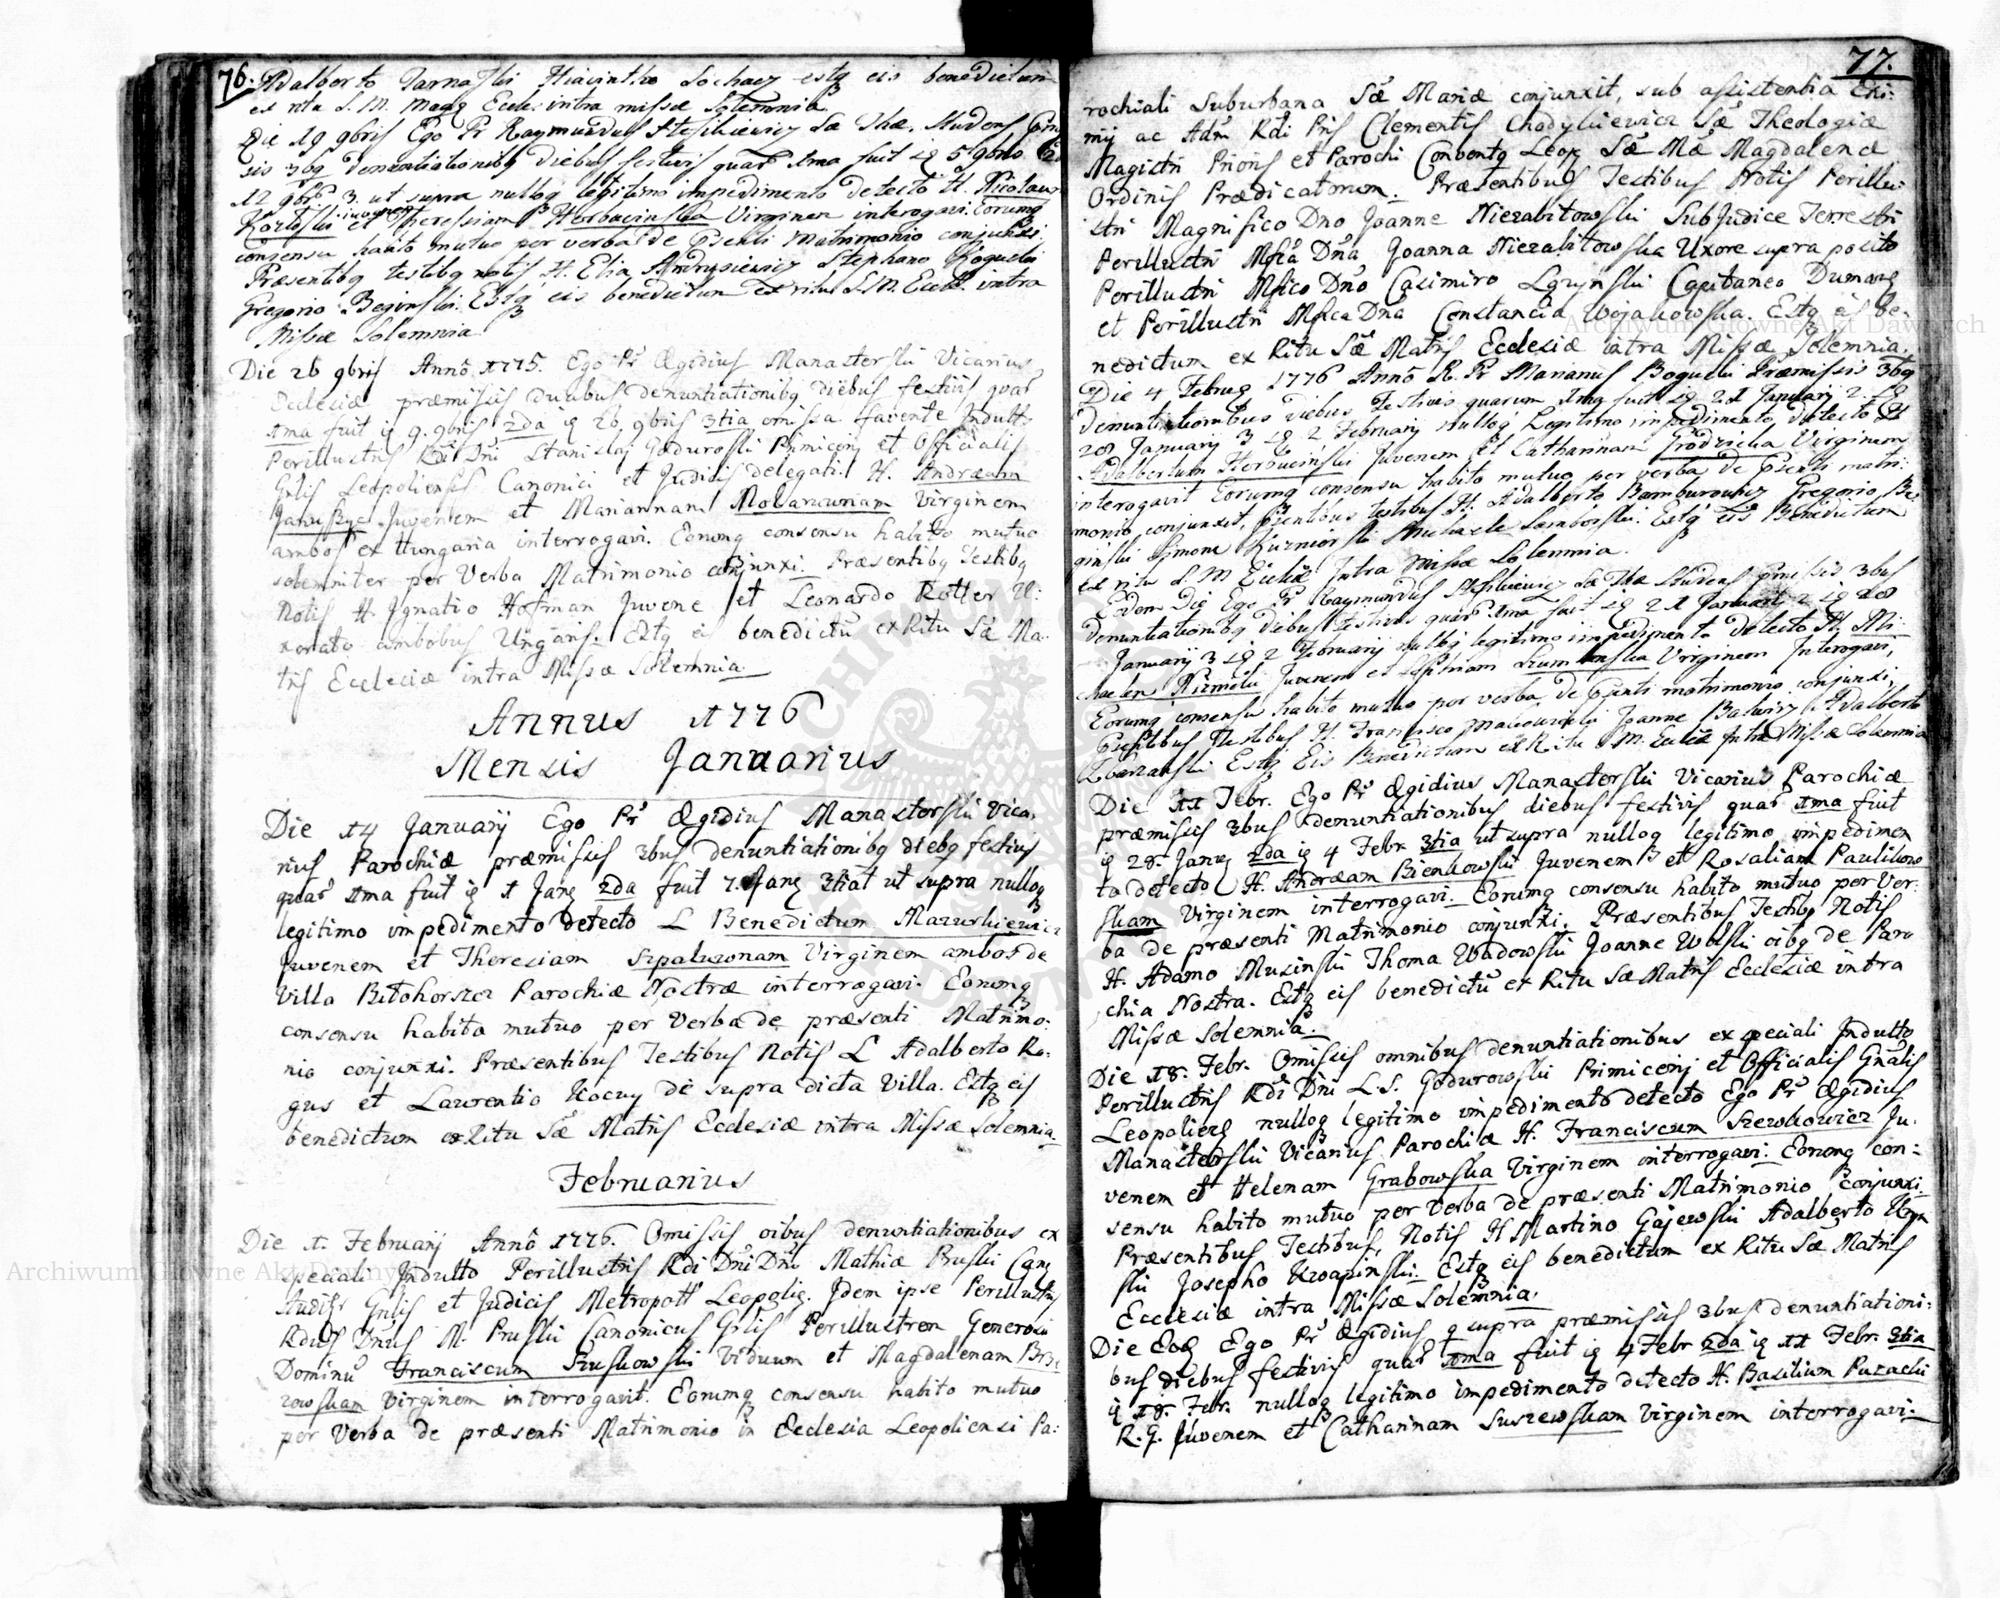 76.
Adalberto Tarnaski Hiacintho Sochacz estq eis benedictum
ex ritu S. M. Magq Eccle: intra missæ solemnia
Die 19 9bris Ego Pr Raymundus Stefikiewicz Sæ Thæ. Studens
sis 3bq denuntiationibq diebus festivis quar 1ma fuit 19 5 9bris
12 9bris 3. ut supra nulloq legitimo impedimento detecto H. Nicolaum
juvenem
et Theressiam Horbacinska Virginem interogavi Eorumq
consensu habito mutuo per verba de Psenti Matrimonio conjunxi
Præsentibq testibq notis H. Elia Andrusiewicz Stephano Rogucki
Gregorio Beginski. Estq eis benedictum ex ritu S. M. Eccl. intra
Missæ Solemnia
Die 26 9bris Annô 1775. Ego Pr Ægidius Manasterski Vicarius
Ecclesiæ præmissis duabus denuntiationibq diebus festivis quar
1ma fuit iq 9. 9bris 2da iq 26. 9bris 3tia omissa favente Indulto
Perillustris Rdi Dni Stanislaj Goduroski Primicerij et Officialis
Gnlis Leopoliensis Canonici et Judicis delegati. H. Andræam
Januszye Juvenem et Mariannam Molarcownam Virginem
ambos ex Hungaria interrogavi. Eorumq consensu habito mutuo
solemniter per Verba Matrimonio conjunxi. Præsentibq Testibq
Notis H. Ignatio Hofman Juvene et Leonardo Rotter U:
xorato ambobus Ungaris. Estq eis benedictū ex Ritu Sæ Ma:
tris Ecclesiæ intra Missæ Solemnia.
Annus 1776
Mensis Januarius
Die 14 Januarij Ego Pr Ægidius Manasterski Vica:
rius Parochiæ præmissis 3bus denuntiationibq diebq festivis
quar 1ma fuit iq 1 Janq 2da fuit 7. Janq 3tia ut supra nulloq
legitimo impedimento detecto L Benedictum Mazurkiewicz
Juvenem et Theresiam Szpakownam Virginem ambos de
Villa Bitohorszcz Parochiæ Nostræ interrogavi. Eorumq
consensu habito mutuo per Verba de præsenti Matrimo:
nio conjunxi. Præsentibus Testibus Notis L Adalberto Ro:
gus et Laurentio Kocuy de supra dicta Villa. Estq eis
benedictum ex Ritu Sæ Matris Ecclesiæ intra Missæ Solemnia.
Februarius
Die 1. Februarij Annô 1776. Omissis oibus denuntiationibus ex
speciali Indulto Perillustris Rdi Dni Dni Mathiæ Pruski Canq
Gnlis et Judicis Metropott Leopoliq. Idem ipse Perillustris
Rdus Dnus M. Pruski Canonicus Gnlis Perillustrem Generosū
Dominū Franciscum Szuskowski Viduum et Magdalenam
zowskam Virginem interrogavit. Eorumq consensu habito mutuo
per Verba de præsenti Matrimonio in Ecclesia Leopoliensi Pa:
77.
rochiali Suburbana Sæ Mariæ conjunxit, sub assistentia Exi:
mij ac Adm Rdi Pris Clementis Chodykiewicz Sæ Theologiæ
Magistri Prioris et Parochi Conventq Leop Sæ Mæ Magdalenæ
Ordinis Prædicatorum. Præsentibus Testibus Notis Perillu:
stri Magnifico Dno Joanne Niezabitowski SubJudice Terrestri
Perillustri Mfca Dna Joanna Niezabitowska Uxore supra posito
Perillustri Mfico Dno Casimiro Capitaneo
et Perillustri Mfica Dna Constancia Wojakowska. Estq eis be:
nedictum ex Ritu Sæ Matris Ecclesiæ intra Missæ Solemnia.
Die 4 Februq 1776 Annô R. Pr Marianus Bogucki Præmissis 3bq
denuntiationibus diebus festivis quarum 1ma fuit 19 21 Januarij 2. 19
28 Januarij 3 19 2 February nulloq Legitimo impedimento detecto H
Adalbertum Horbacinski Juvenem et Catharinam Grodzicka Virginem
interogavit Eorumq consensu habito mutuo per verba de Psenti matri:
monio conjunxit, Psentibus testibus H. Adalberto Bamburowicz Gregorio Be
ginski Simone Kuzmioski Michaele Samborski. Estq eis Benedictum
ex ritu S. M Ecclæ Intra Missæ Solemnia.
Eodem Die Ego Pr Raymundus Stefikiewicz Sæ Thæ Studens Pmissis 3bus
denuntiationibq diebus festivis quar 1ma fuit 19 21 Januarij 2 19 28
Januarij 3 19 2 February nulloq legitimo impedimento detecto H. Mi:
chaelem Niemetz Juvenem et Virginem Interogavi,
Eorumq consensu habito mutuo per verba de Psenti matrimonio conjunxi,
Psentibus Testibus H. Francisco Joanne Adalberto
Estq Eis Benedictum ex Ritu S. M. Ecclæ Intra Missæ Solemnia
Die 11 Febr. Ego Pr Ægidius Manasterski Vicarius Parochiæ
præmissis 3bus denuntiationibus diebus festivis quar 1ma fuit
iq 28. Janq 2da iq 4 Febr 3tia ut supra nulloq legitimo impedimen
to detecto H. Andræam Bienkowski Juvenem et Rosaliam Paulikow
skam Virginem interrogavi. Eorumq consensu habito mutuo per Ver:
ba de præsenti Matrimonio conjunxi. Præsentibus Testibq Notis
H. Adamo Musinski Thoma Wadowski Joanne Wolski oibq de Paro
chia Nostra. Estq eis benedictū ex Ritu Sæ Matris Ecclesiæ intra
Missæ Solemnia.
Die 18. Febr. Omissis omnibus denuntiationibus ex speciali Indulto
Perillustris Rdi Dni L. S. Godurowski Primicerij et Officialis Gnalis
Leopolieq nulloq legitimo impedimento detecto Ego Pr Ægidius
Manasterski Vicarius Parochiæ H. Franciscum Szewkowicz Ju:
venem et Helenam Grabowska Virginem interrogavi. Eorumq con:
sensu habito mutuo per Verba de præsenti Matrimonio conjunxi.
Præsentibus Testibus, Notis H Martino Gajewski Adalberto
ski Josepho Kwapinski. Estq eis benedictum ex Ritu Sæ Matris
Ecclesiæ intra Missæ Solemnia.
Die Eoq Ego Pr Ægidius q supra præmissis 3bus denuntiationi:
bus diebus festivis quar 1ma fuit iq 4 Febr 2da iq 11 Febr. 3tia
iq 18. Febr. nulloq legitimo impedimento detecto H. Basilium Puzacki
R. G. Juvenem et Catharinam Suszewskam Virginem interrogavi.
Archiwum Główne Akt Dawnych
Archiwum Główne Akt Dawnych